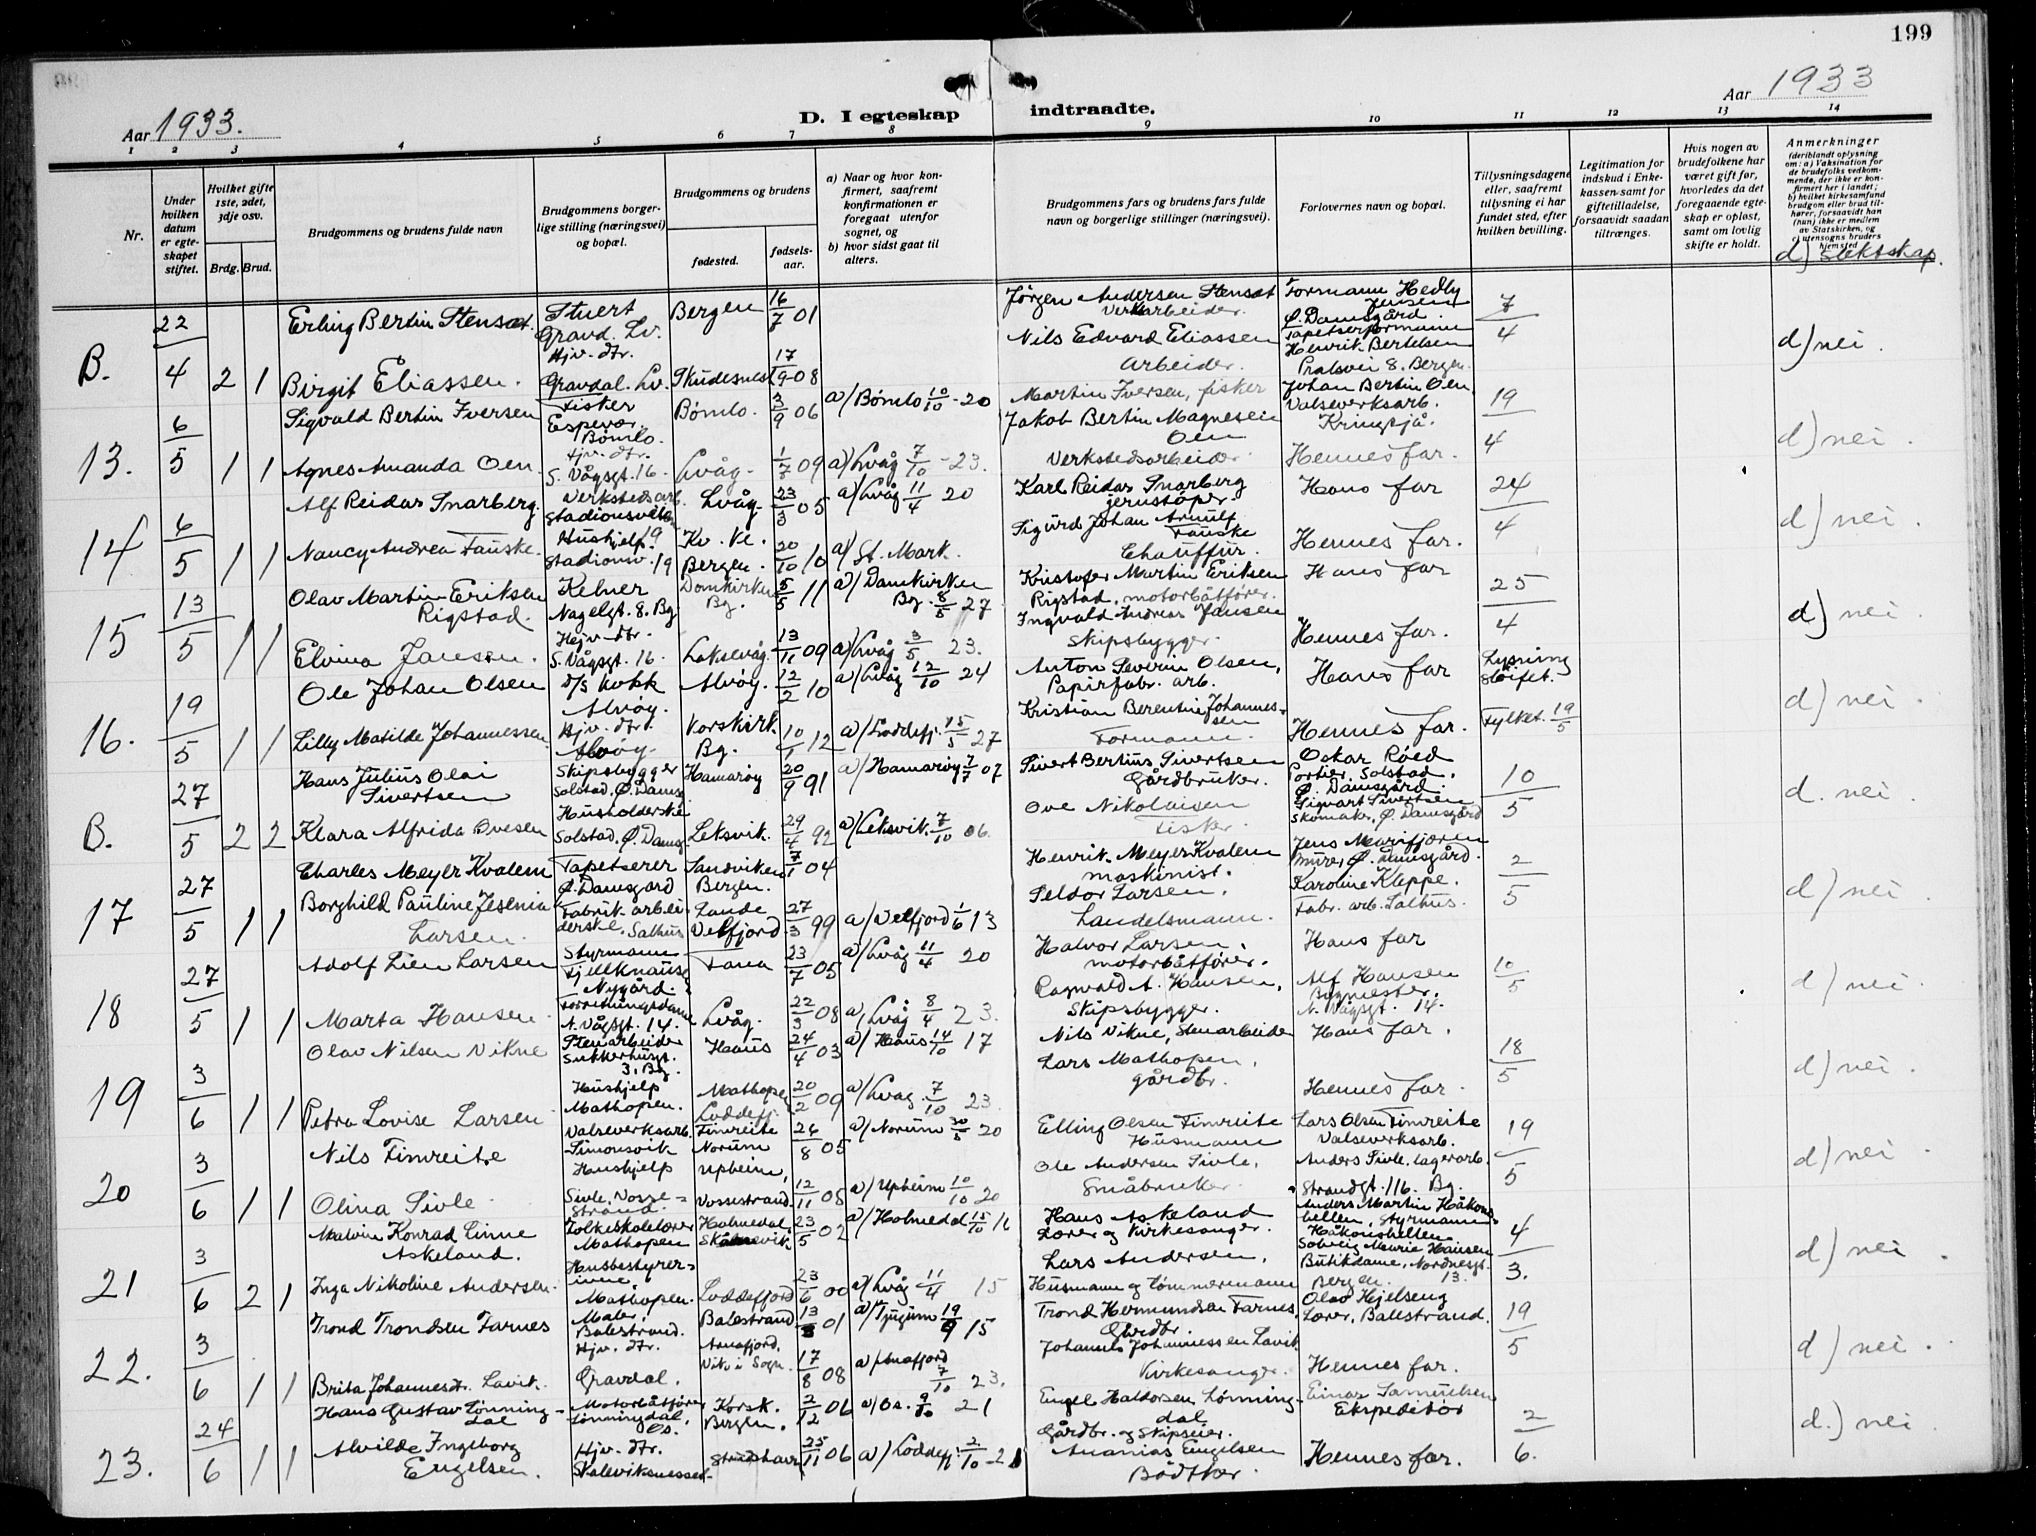 199
Aar 1933.
D. I egteskap indtraadte.
Aar 1933
1 2 3 4 5 6 7 8 9 10 11 12 13 14
Nr.
Under hvilken datum er egteskapet stiftet.
Hvilket gifte 1ste, 2det, 3dje osv.
Brdg. Brud.
Brudgommens og brudens fulde navn
Brudgommens borgerlige stilling (næringsvei) og bopæl.
Brudgommens og brudens
fødested.
fødselsaar.
a) Naar og hvor konfirmert, saafremt konfirmationen er foregaat utenfor sognet, og
b) hvor sidst gaat til alters.
Brudgommens fars og brudens fars fulde navn og borgerlige stillinger (næringsvei).
Forlovernes navn og bopæl.
Tillysningsdagene eller, saafremt tillysning ei har fundet sted, efter hvilken bevilling.
Legitimation for indskud i Enkekassen samt for giftetilladelse, forsaavidt saadan tiltrænges.
Hvis nogen av brudefolkene har været gift før, hvorledes da det foregaaende egteskap er opløst, samt om lovlig skifte er holdt.
Anmerkninger
(deriblandt oplysning om: a) Vaksination for de brudefolks vedkommende, der ikke er konfirmert her i landet; b) hvilket kirkesamfund brudgom eller brud tilhører, forsaavidt han (hun) ikke er medlem av Statskirken, og c) utensogns bruders hjemsted
d) Slektskap.
B. 22/4 2 1
Erling Bertin Stensæt. Stuert Gravd. Lv. Bergen 16/7 01 Jørgen Andersen Stensæt Verkarbeider. Formann Hedly Jensen Ø. Damsgård. 7/4
Birgit Eliassen. Hjv. dtr. Gravdal. Lv. Skudesnes 17/9 08 Nils Edvard Eliassen Arbeider. Tapetserformann Henrik Bertelsen Pralsvei 8. Bergen d) nei.
13. 6/5 1 1
Sigvald Bertin Iversen Fisker Espevær. Bømlo. Bømlo. 3/9 06 a) Bømlo 10/10 - 20 Martin Iversen, fisker Johan Bertin Oen Valseverksarb. Kringsjå. 19/4
Agnes Amanda Oen. Hjv. dtr. S. Vågsgt. 16. Lvåg. 1/7 09 a) Lvåg 7/10 - 23. Jakob Bertin Magnesen Oen Verkstedsarbeider Hennes far. d) nei.
14 6/5 1 1
Alf Reidar Snarberg. Verkstedsarb. Stadionsveien 19 Lvåg. 23/3 05 a) Lvåg 11/4 20 Karl Reidar Snarberg jernstøper. Hans far 24/4
Nancy Andrea Fauske. Hushjelp. Stadionsv. 19 Kv. Kl. Bergen. 20/10 10 a) St. Mark. Sigurd Johan Arnulf Fauske Chauffür. Hennes far. d) nei.
15 13/5 1 1
Olav Martin Eriksen Rigstad. Kelner Nagelgt. 8. Bg Domkirken Bg. 5/5 11 a) Domkirken Bg. 8/5 27 Kristofer Martin Eriksen Rigstad, motorbåtfører. Hans far 25/4
Elvina Jansen. Hejv. dtr. S. Vågsgt. 16. Laksevåg. 13/11 09 a) Lvåg 3/5 23. Ingvald Andreas Jansen Skipsbygger. Hennes far. d) nei.
16. 19/5 1 1
Ole Johan Olsen D/S kokk Alvøy. Alvøy. 12/2 10 a) Lvåg 12/10 24 Anton Severin Olsen, Papirfabr. arb. Hans far Lysning sløifet.
Lilly Matilde Johannessen. Hjv. dtr. Alvøy. Korskirk. Bg. 10/1 12 a) Loddefj. 15/5 27 Kristian Berentin Johannessen Formann. Hennes far. Fylket. 19/5 d) nei.
B. 27/5 2 2
Hans Julius Olai Sivertsen Skipsbygger Solstad, Ø. Damsg. Hamarøy 20/9 91 a) Hamarøy 7/7 07 Sivert Bertius Sivertsen Gårdbruker. Oskar Røed Portier. Solstad. Ø. Damsgård. 10/5
Klara Alfrida Ovesen Husholderske Solstad, Ø. Damsg. Leksvik. 29/4 92 a) Leksvik. 7/10 06. Ove Nikolaisen Fisker. Sigvart Sivertsen Skomaker, Ø. Damsgård d. nei.
17 27/5 1 1
Charles Meyer Kvalem Tapetserer Ø. Damsgard Sandviken Bergen. 7/1 04 Henrik Meyer Kvalem maskinist. Jens Murifjoren Murer, Ø. Damsgård. 2/5
Borghild Pauline Jesenia Larsen. Fabrik arbeiderske. Salhus Lande Velfjord 27/3 99 a) Velfjord 1/6 13 Seldor Larsen, Landelsmann. Karoline Kleppe. Fabr. arb. Salhus. d) nei.
18 27/5 1 1
Adolf Lien Larsen Styrmann Fjellknausg Nygård. Fana 23/7 05 a) Lvåg 11/4 20 Halvor Larsen, motorbåtfører. Hans far 10/5
Marta Hansen. Forretningsdame N. Vågsgt. 14. Lvåg. 22/3 08 a) Lvåg 8/4 23. Ragnvald A. Hansen, Skipsbygger. Alf Hansen Bygmester. N. Vågsgt. 14. d) nei.
19 3/6 1 1
Olav Nilsen Vikne Stenarbeider Sukkerhusgt. 3, Bg. Haus 24/4 03 a) Haus 14/10 17 Nils Vikne, Stenarbeider Hans far. 18/5
Petra Lovise Larsen. Hushjelp Mathopen. Mathopen Loddefj. 20/2 09 a) Lvåg. 7/10 23. Lars Mathopen, gårdbr. Hennes far. d) nei.
20 3/6 1 1
Nils Fimreite Valseverksarb. Simonsvik Fimreite Norum 26/8 05 a) Norum 30/5 20 Elling Olsen Fimreite Husmann Lars Olsen Fimreite Valseverksarb. 19/5
Olina Sivle. Hushjelp Sivle, Vossestrand. Upheim, Vossestrand. 12/11 05 a) Upheim 10/10 20 Ole Andersen Sivle, Småbruker. Anders Sivle, lagerarb. Strandgt. 116. Bg. d) nei.
21 3/6 2 1
Malvin Konrad Linne Askeland. Folkeskolelærer Mathopen Holmedal, Skånevik. 23/5 02 a) Holmedal 15/10 16 Hans Askeland Lærer og Kirkesanger. Anders Martin Håkonshellen, Styrmann Håkonshellen 4/3.
Inga Nikoline Andersen. Husbestyrerinne, Mathopen. Loddefjord 23/6 00 a) Lvåg 11/4 15 Lars Andersen, Husmann og tømmermann Solveig Maurie Hansen Butikdame, Nordnesgt. 13. Bergen. d) nei.
22. 3/6 1 1
Trond Trondsen Farnes Maler, Balestrand. Balestrand 13/8 01 a) Tjugum 19/9 15 Trond Hermundsen Farnes, Gårdbr. Olav Hjelseng Lærer, Balestrand. 19/5
Brita Johannesdr. Lavik. Hjv. dtr. Gravdal. Arnafjord, Vik i Sogn. 17/8 08 a) Arnafjord 7/10 23. Johannes Johannessen Lavik Kirkesanger. Hennes far. d) nei.
23. 24/6 1 1
Hans Gustav Lønningdal Motorbåtfører Lønningdal, Os. Korsk. Bergen. 2/12 06 a) Os. 9/10 21 Engel Haldorsen Lønningdal Gårdbr. og Skipseier. Einar Samuelsen Ekspeditør 2/6.
Alvilde Ingeborg Engelsen. Hjv. dtr. Skaleviksnesset. 25/11 06 a) Loddefj. 2/10 - 21 Ananias Engelsen Bødtker. Hennes far. d.) nei